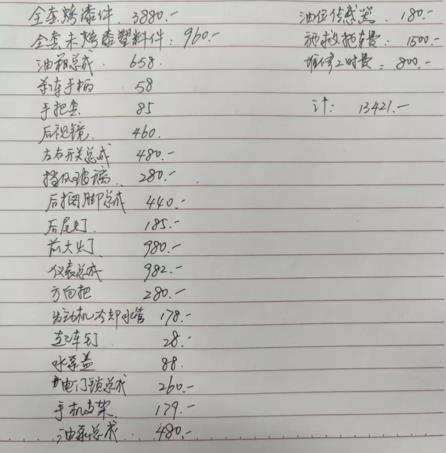 全套烤漆件. 3880.-
全套未烤漆塑料件: 960.-
油箱总成 658
刹车手柄 58
手把套 85
后视镜. 460.
左右开关总成 480.-
挡风玻璃. 280.-
后搁脚总成 440.-
后尾灯. 185.-
前大灯 980.-
仪表总成 982.-
方向把 280.-
发动机冷却水管 178.-
刹车灯 28.-
水泵盖 88.
电门锁总成 260.-
手机支架. 179.-
油泵总成. 480.-
油位传感器. 180.-
施救拖车费: 1500.-
维修工时费: 800.-
计: 13421.-